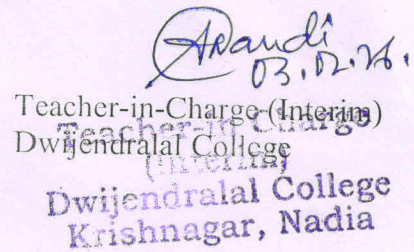 03.02.26.
Teacher-in-Charge (Interim)
Dwijendralal College
Teacher-in Charge
(Interim)
Dwijendralal College
Krishnagar, Nadia